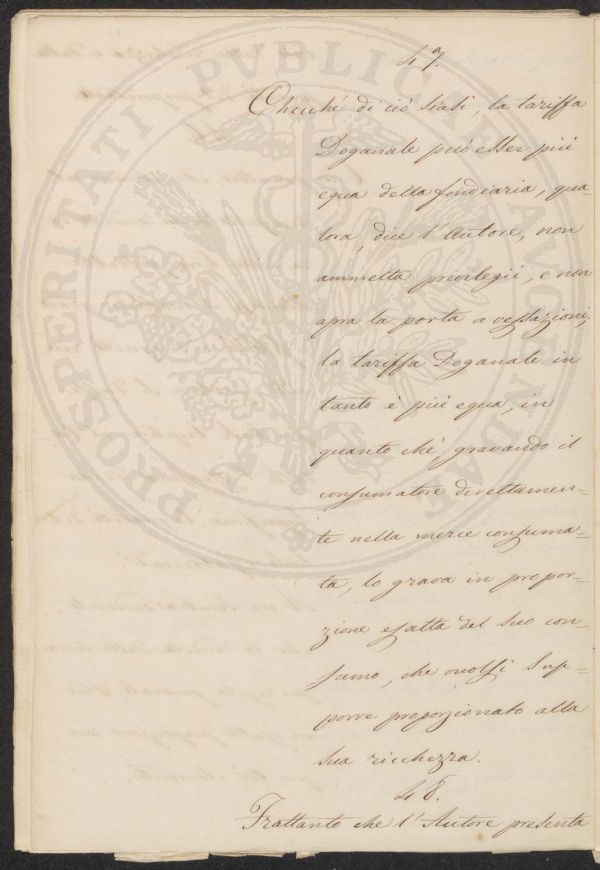 47.
Checché di ciò siasi, la tariffa
Doganale può esser più
equa della fondiaria, qua-
lora, dice l'Autore, non
ammetta privilegii, e non
apra la porta a vessazioni;
la tariffa Doganale in
tanto è più equa, in
quanto chè, gravando il
consumatore direttamen-
te nella merce consuma-
ta, lo grava in propor-
zione esatta del suo con-
sumo, che vuolsi sup-
porre proporzionato alla
sua ricchezza.
48.
Frattanto che l'Autore presenta
PROSPERITATI PUBLICAE AUGENDAE